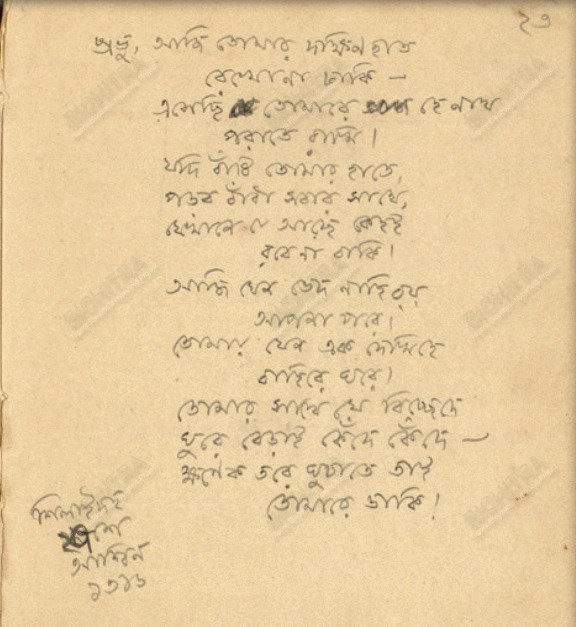 ২৩
প্রভু, আজি তোমার দক্ষিণ হাত
রেখোনা ঢাকি —
এসেছি তোমারে হে নাথ
পরাতে রাখি।
যদি বাঁধি তোমার হাতে,
পড়ব বাঁধা সবার সাথে,
যেখানে যে আছে কেহই
রবেনা বাকি।
আজি যেন ভেদ নাহি রয়
আপনা পরে।
তোমায় যেন এক দেখিহে
বাহিরে ঘরে।
তোমার সাথে যে বিচ্ছেদে
ঘুরে বেড়াই কেঁদে কেঁদে —
ক্ষণেক তরে ঘুচাতে তাই
তোমারে ডাকি।
শিলাইদহ
শে
আশ্বিন
১৩১৬
BICHITRA